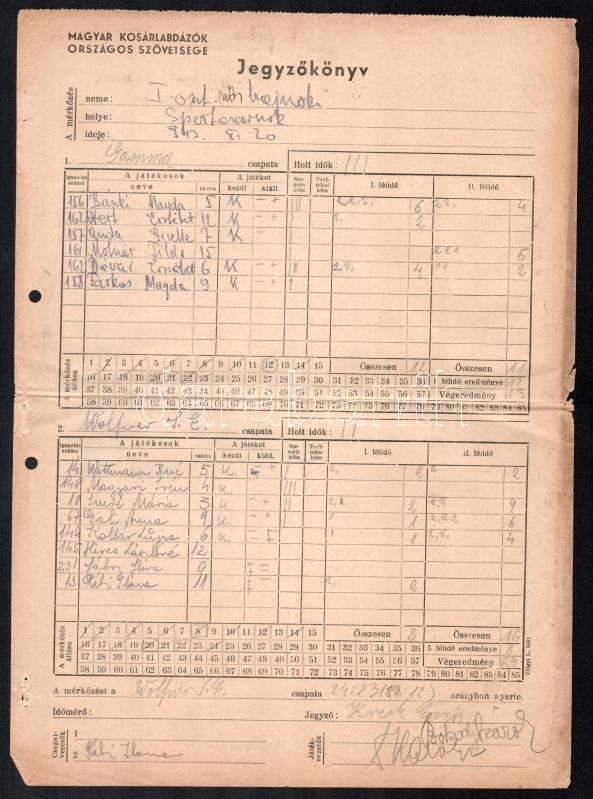 MAGYAR KOSÁRLABDÁZÓK
ORSZÁGOS SZÖVETSÉGE
Jegyzőkönyv
A mérkőzés
neme: I. oszt. női bajnoki
helye: Sportcsarnok
ideje: 943. XI. 20
1. Gamma csapata Holt idők: III
Igazolás száma A játékosok neve száma A játékot kezdi kiáll. Személyi hiba Technikai hiba I. félidő II. félidő
156 Bánki Magda 5 K - + III 2, 2, 2, 6 2 2, 4
162 Erzsébet 12 K - + II 2, 2
157 Gizella 7 K -
161 Molnár Tilda 15 2 2 1 5
162 Dévai Erzsébet 6 K - + II 2 2, 4 1 1 2
158 Farkas Magda 9 K - + I
A mérkőzés állása
1 2 3 4 5 6 7 8 9 10 11 12 13 14 15 Összesen 12 Összesen 11
16 17 18 19 20 21 22 23 24 25 26 27 28 29 30 31 32 33 34 35 36 I. félidő eredménye 12
37 38 39 40 41 42 43 44 45 46 47 48 49 50 51 52 53 54 55 56 57 Végeredmény 23
58 59 60 61 62 63 64 65 66 67 68 69 70 71 72 73 74 75 76 77 78 79 80 81 82 83 84 85
darabanth
2. Wolfner S. E. csapata Holt idők:
Igazolás száma A játékosok neve száma A játékot kezdi kiáll. Személyi hiba Technikai hiba I. félidő II. félidő
141 Wittmann 5 K. I 2, 2 2 2
148 Magyari Irén 4 K. III
10 Imre Mária 3 K - + II 2, 2 2, 2, 4
67 Gáli Anna 9 K - + II 1 1 2, 2, 2, 6
144 Kollár Lujza 6 K. - 1 1 2, 2, 4
145 Híres Lászlóné 12
231 Ilona 9
13 Rébi Ilona 11 2, 2
A mérkőzés állása
1 2 3 4 5 6 7 8 9 10 11 12 13 14 15 Összesen 8 Összesen 16
16 17 18 19 20 21 22 23 24 25 26 27 28 29 30 31 32 33 34 35 36 I. félidő eredménye 8
37 38 39 40 41 42 43 44 45 46 47 48 49 50 51 52 53 54 55 56 57 Végeredmény 24
58 59 60 61 62 63 64 65 66 67 68 69 70 71 72 73 74 75 76 77 78 79 80 81 82 83 84 85
A mérkőzést a Wolfner S.E. csapata 24:23 (8:12) arányban nyerte.
Időmérő: Jegyző:
Csapatvezetők 1. Játékvezetők
2. Rébi Ilona